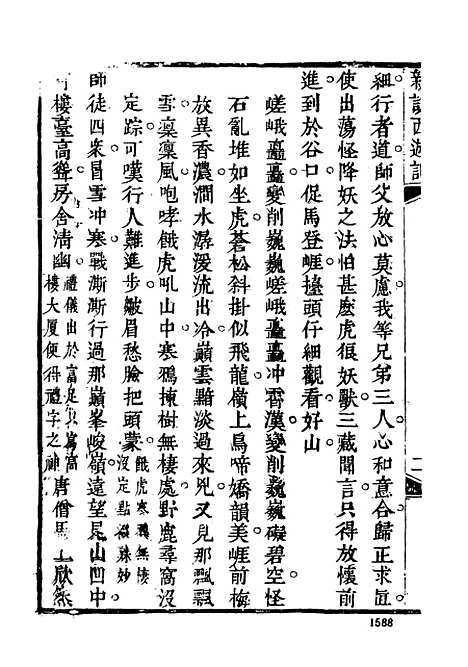 新說西遊記
細行者道師父放心莫慮我等兄弟三人心和意合歸正求眞
使出蕩怪降妖之法怕甚麽虎狼妖獸三藏聞言只得放懷前
進到於谷口促馬登崖擡頭仔細觀看好山
嵯峨矗矗變削巍巍嵯峨矗矗冲霄漢變削巍巍礙碧空怪
石亂堆如坐虎蒼松斜掛似飛龍嶺上鳥啼嬌韻美崖前梅
放異香濃澗水潺湲流出冷巔雲黯淡過來兇又見那飄飄
雪凜凜風咆哮餓虎吼山中寒鴉揀樹無棲處野鹿尋窩沒
定踪可嘆行人難進步皺眉愁臉把頭蒙餓虎寒鴉無棲
沒定點綴妙
師徒四衆冒雪冲寒戰澌澌行過那巔峯峻嶺遠望見山凹中
樓臺高聳房舍清幽禮儀出於富足
樓大厦便得禮字之神唐僧馬上欣然
二
1588